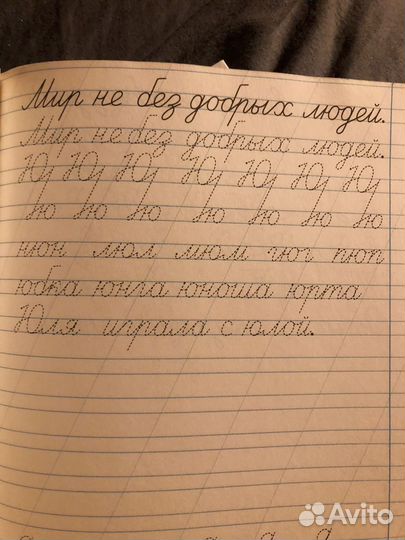 Мир не без добрых людей.
Мир не без добрых людей.
Ю Ю Ю Ю Ю Ю Ю
ю ю ю ю ю ю ю
нюн люл мюм гюг пюп
юбка юнга юноша юрта
Юля играла с юлой.
Avito